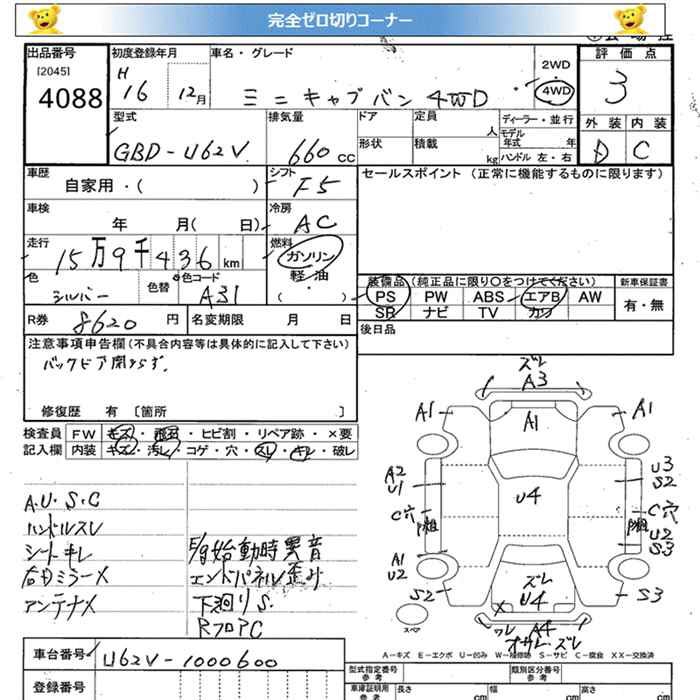 完全ゼロ切りコーナー
出品番号 初度登録年月 車名・グレード 評価点
[2045] 4088
H 16 12月 ミニキャブバン 4WD 2WD 4WD 3
型式 排気量 ドア 定員 ディーラー・並行 外装 内装
GBD-U62V 660 CC 形状 積載 人 kg モデル年式 年 ハンドル 左・右 D C
車歴 シフト セールスポイント(正常に機能するものに限ります)
自家用・( ) F5
車検 冷房
年 月( 日) AC
走行 燃料
15万9千436km ガソリン
軽油
( ・ )
色 色替 色コード
シルバー A31
装備品(純正品に限り〇をつけてください) 新車保証書
PS PW ABS エアB AW 有・無
SR ナビ TV カワ
R券 8620 円 名変期限 月 日 後日品
注意事項申告欄(不具合内容等は具体的に記入して下さい)
バックドア開かず。
修復歴 有 [箇所 ]
検査員 FW キズ・飛石・ヒビ割・リペア跡・×要
記入欄 内装 キズ・汚レ・コゲ・穴・スレ・キレ・破レ
A.U.S.C
ハンドルスレ
シートキレ
右ドミラーX
アンテナX
E/g始動時異音
エンドパネル歪み
下廻りS.
RフロアC
ズレ
A3
A1 A1 A1
A2 U1 U4 U3 S2
C穴 C穴
U2 S3
A1 U2
S2 ズレ U4 S3
X ワレ A4
オサレ・ズレ
スペア
A-キズ E-エクボ U-凹み W-補修跡 S-サビ C-腐食 XX-交換済
車台番号 U62V-1000600
登録番号
型式指定番号 類別区分番号
車庫証明用参考 長さ cm 幅 cm 高さ参考 cm